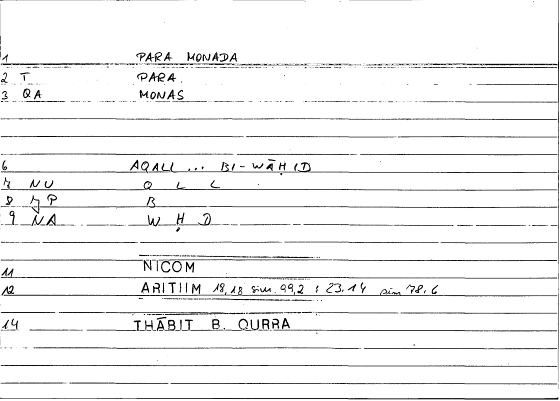 1 PARA MONADA
2 T PARA
3 QA MONAS
6 AQALL ... BI-WĀḤID
7 NU Q L L
8 JP B
9 NA W Ḥ D
11 NICOM
12 ARITIIM 18,18 sim. 99,2 : 23.14 sim 78.6
14 THĀBIT B. QURRA